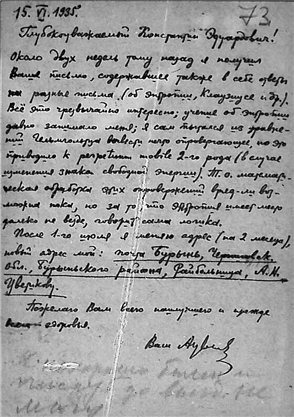 15. VI. 1935. 73
Глубокоуважаемый Константин Эдуардович!
Около двух недель тому назад я получил
Ваше письмо, содержавшее также в себе ответы
на разные письма (об Энтропии, Клаузиусе и др.).
Всё это чрезвычайно интересно; учение об Энтропии
давно занимало меня; я сам пытался из уравне-
ний Гельмгольтца вывести нечто опровергающее, но это
приводило к perpetuum mobile 2-го рода (в случае
изменения знака свободной энергии). Т.о. математи-
ческая обработка этих опровержений вряд-ли воз-
можна пока, но за то что Энтропия имеет место
далеко не везде, говорит сама логика.
После 1-го июля я меняю адрес (на 2 месяца),
новый адрес мой: почта Бурынь,
обл. Бурыньского района, А.М.
Пожелаю Вам всего наилучшего и прежде
здоровья.
Ваш